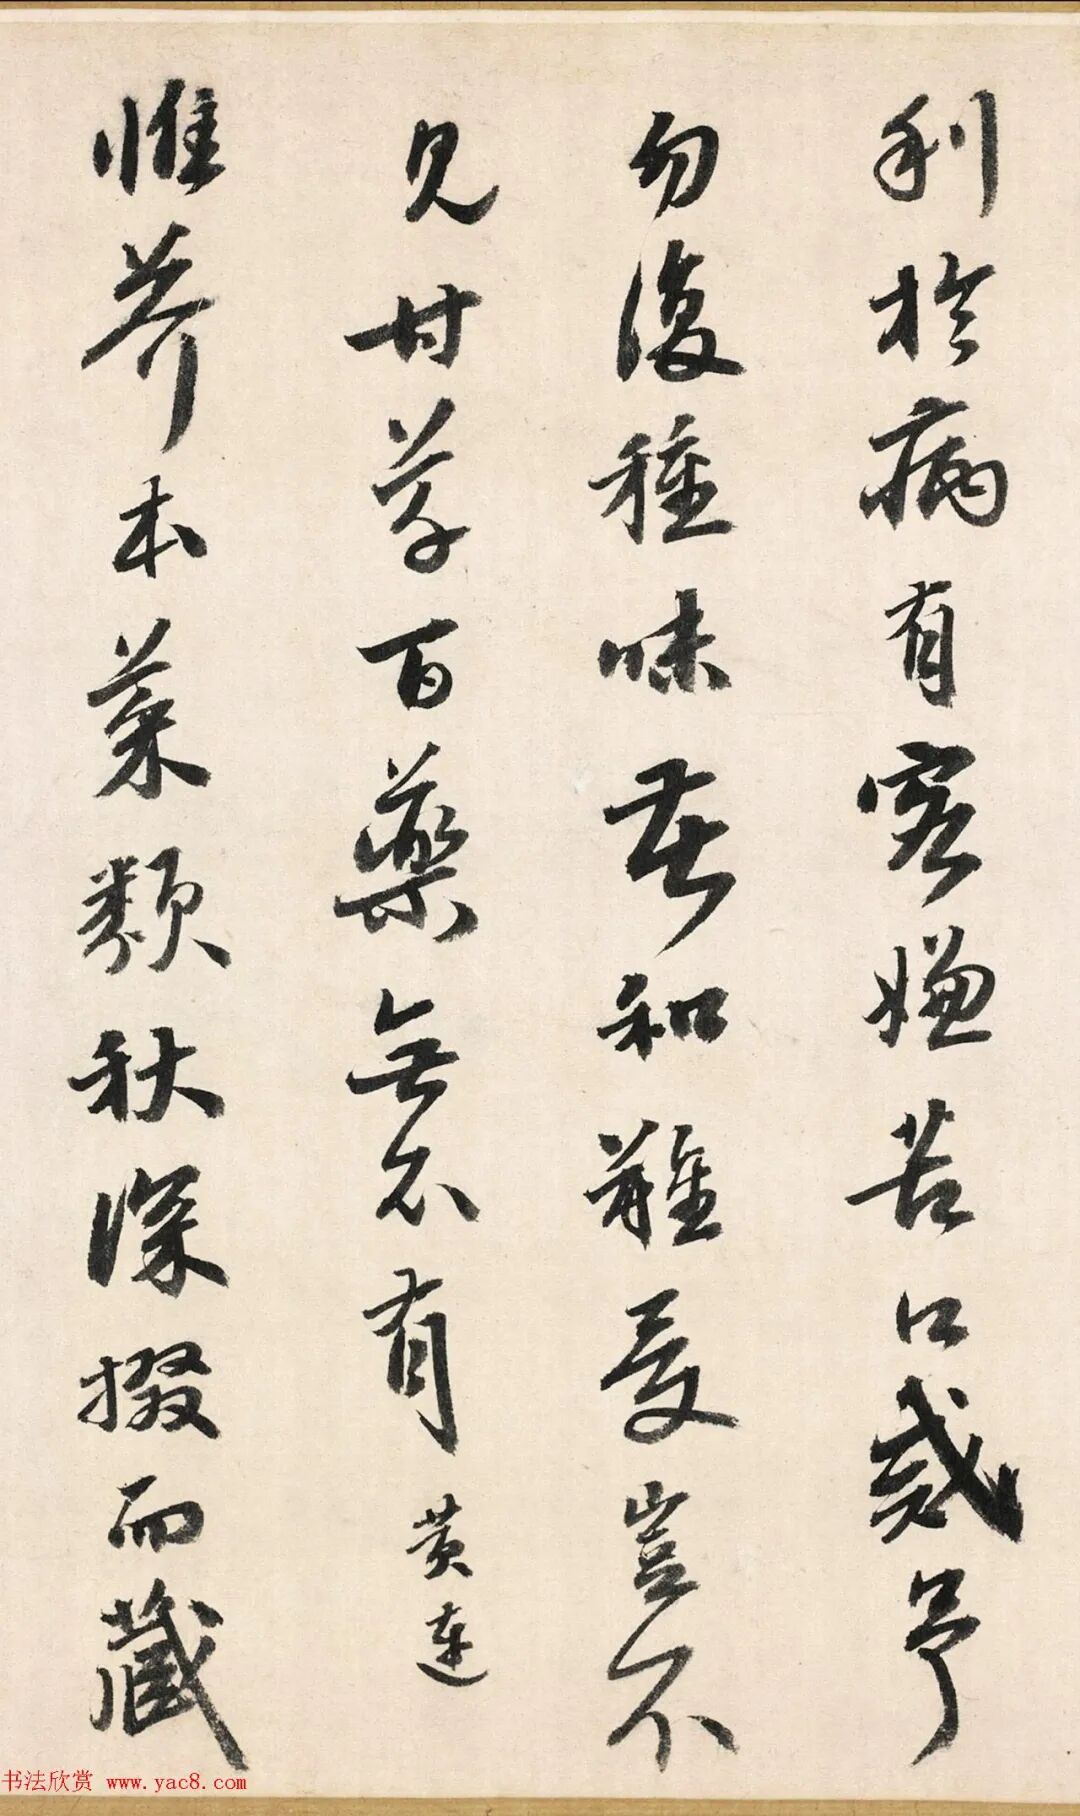 利於病有客嫌苦口戒予
勿復種味苦和難受豈不
見甘草百藥無不有 黄連
惟芥本菜類秋深掇而藏
书法欣赏 www.yac8.com